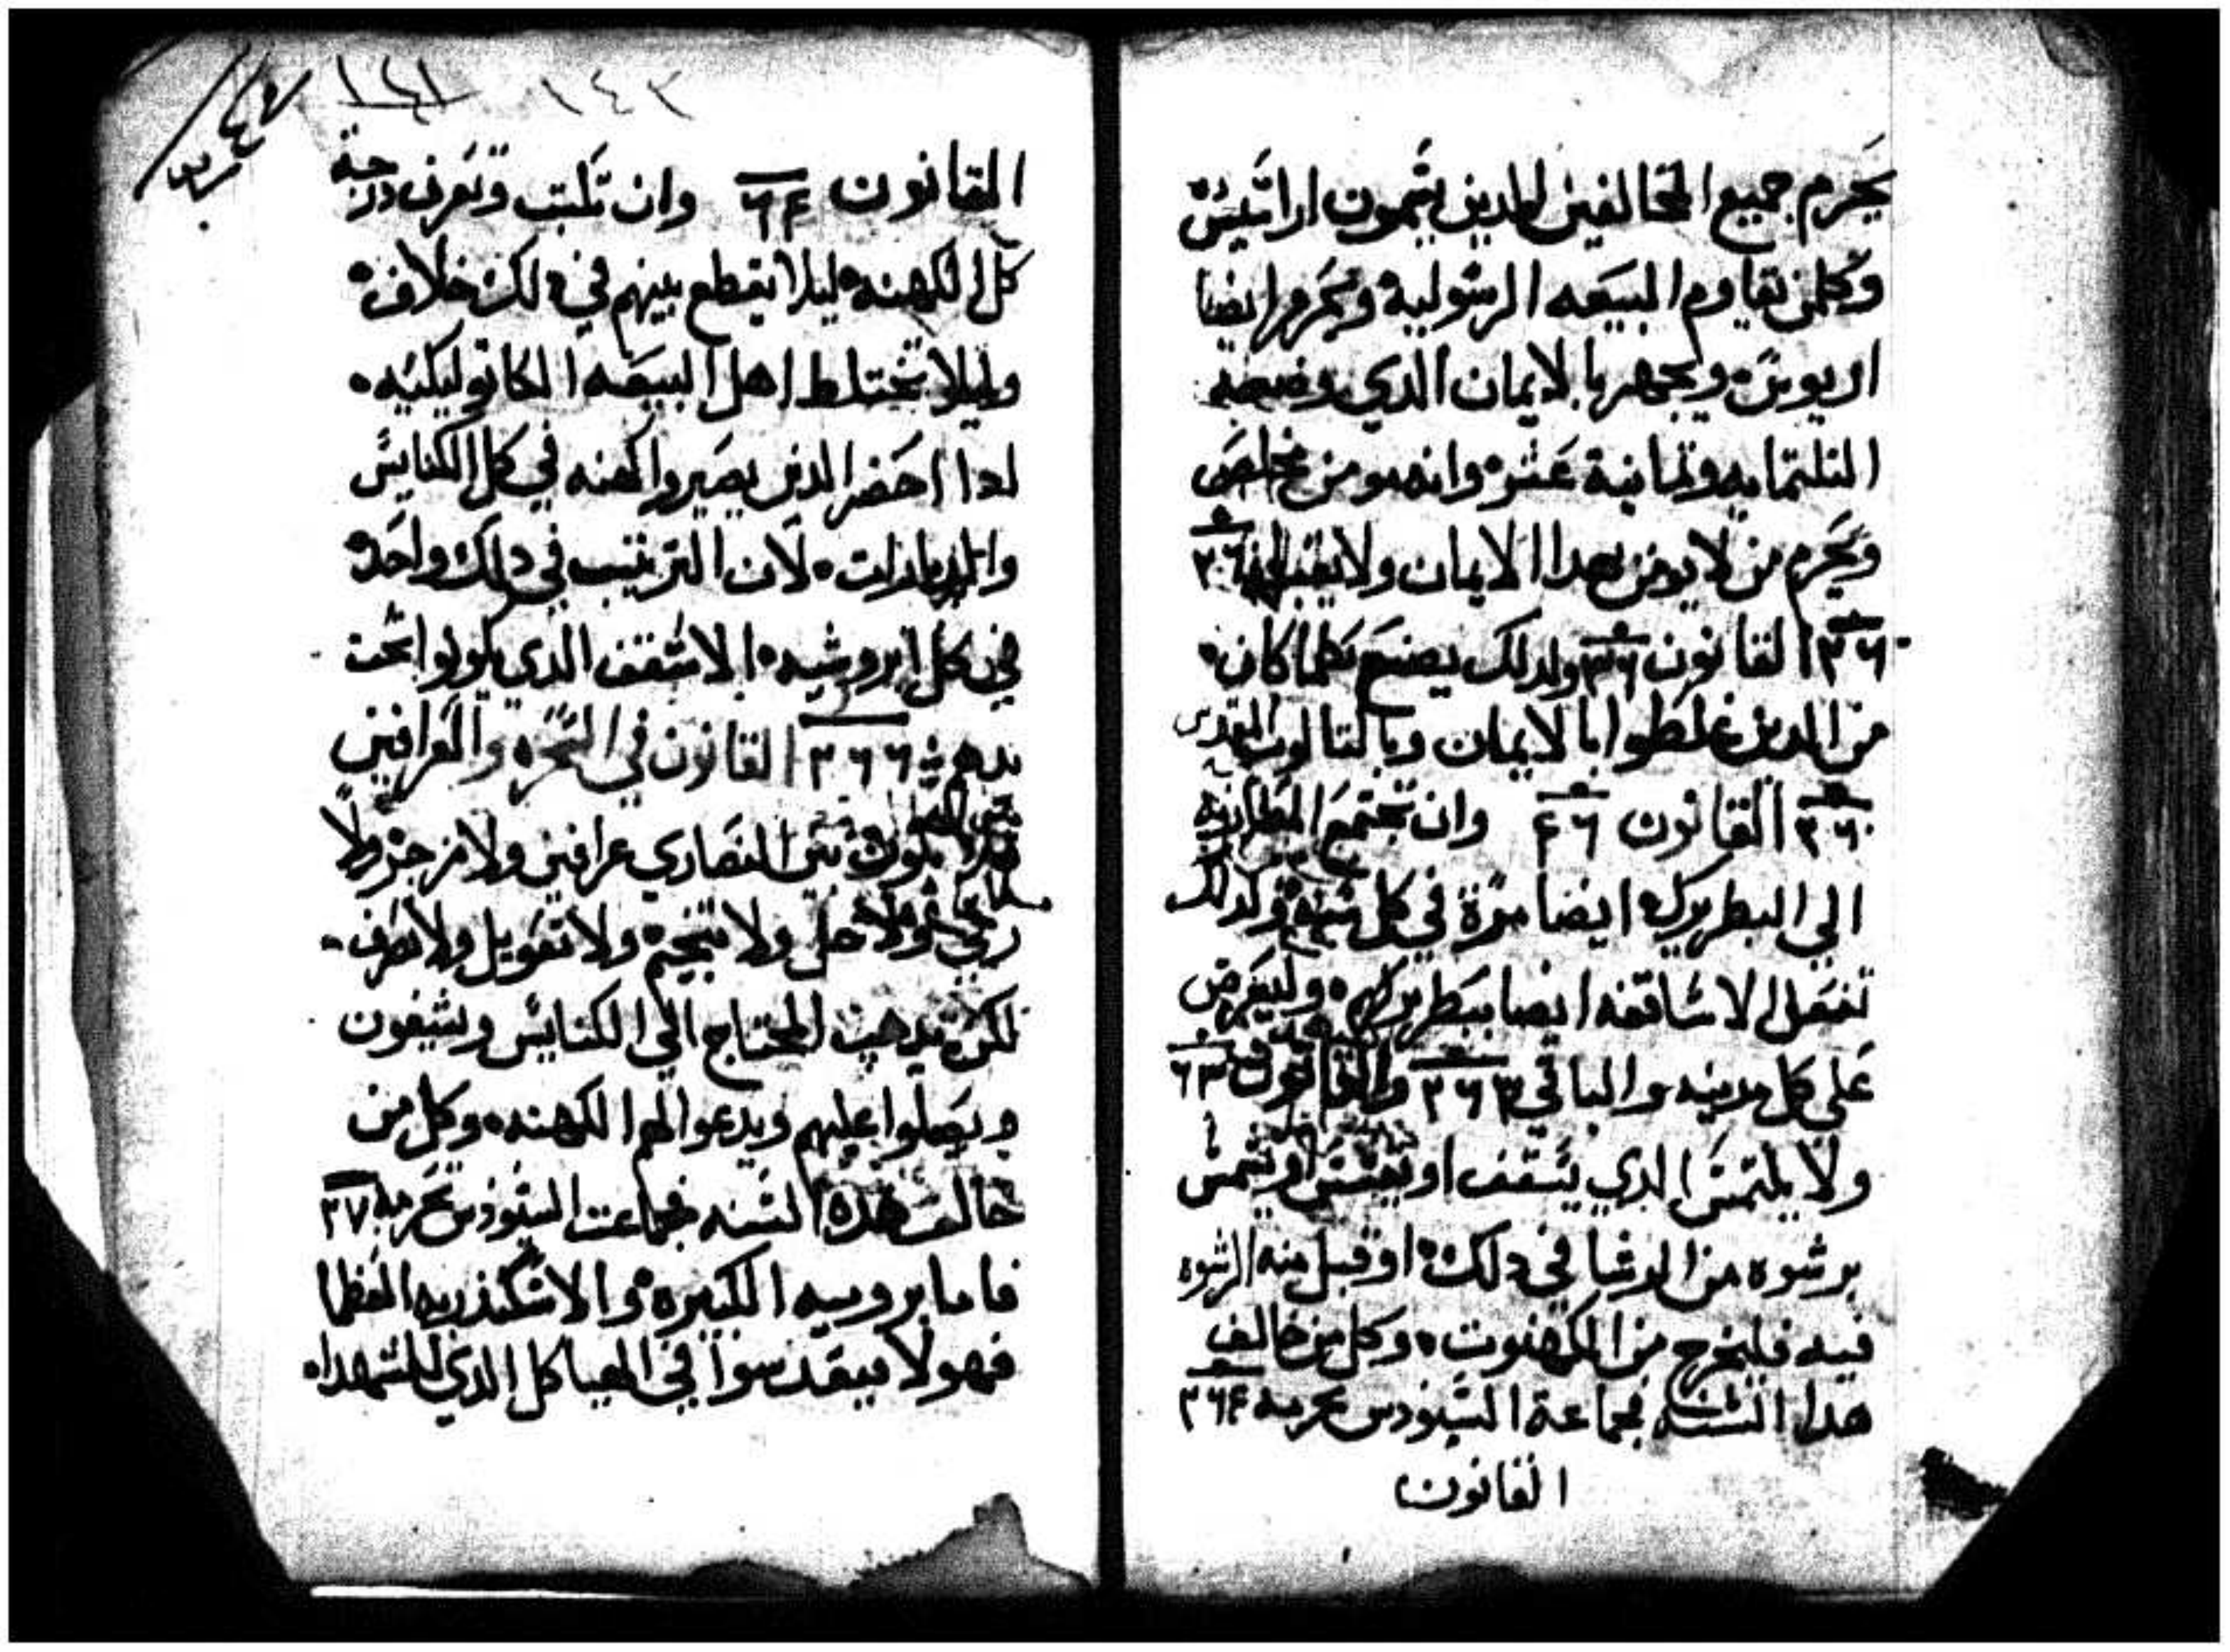 يحرم جميع المخالفين الدين يتمون اراتيس
وكلمن تقاوم البيعه الرسولية ويحرم ايضا
اريوس ويجهر بالايمان الدي وضعه
التلتمايه وتمانية عشر وانه مومن مخلص
ويحرم من لا يومن بهدا الايمان ولا يقبل
٣٦ القانون ٣٦ ولدلك يصنع بكلما كان
من الدين غلطوا بالايمان وبالتالوت المقدس
القانون ٤٦ وان تجتمع المطارنه
الي البطريرك ايضا مرة في كل سنه وكدلك
تفعل الاساقفه ايضا ببطريركهم وليعرض
علي كل مدينه والباقي ٣٦٣ والقانون ٦٣
ولا يلتمس الدي يتسقف او يتقسس او يتشمس
برشوه من الدنيا في دلك او قبل منه الرشوه
فيه فليخرج من الكهنوت وكل من خالف
هدا السنه فجماعة السنودس تحرمه ٣٦٤
القانون
١٤١ ١٤٢
القانون ٦٤ وان تكتب وتعرف درجة
كل الكهنه ليلا يقطع بينهم في دلك خلاف
وليلا تختلط اهل البيعه الكاتوليكيه
ادا احضر الدين يصيروا كهنه في كل الكنايس
والديارات لان الترتيب في دلك واحد
في كل ابروشيه الاسقف الدي يكونوا تحت
يده ٣٦٦ القانون في السحره والعرافين
يكون بين النصاري عرافين ولا من حرز ولا
رقي ولا حل ولا تنجيم ولا تقويل ولا نصرف
لكن يدهب المحتاج الي الكنايس ويشيفون
ويصلوا عليهم ويدعوا لهم الكهنه وكل من
خالف هده السنه فجماعت السنودس تحرمه ٣٧
فاما بروميه الكبيره والاسكندريه العظما
فهولا يتقدسوا في الهياكل الدي للشهدا